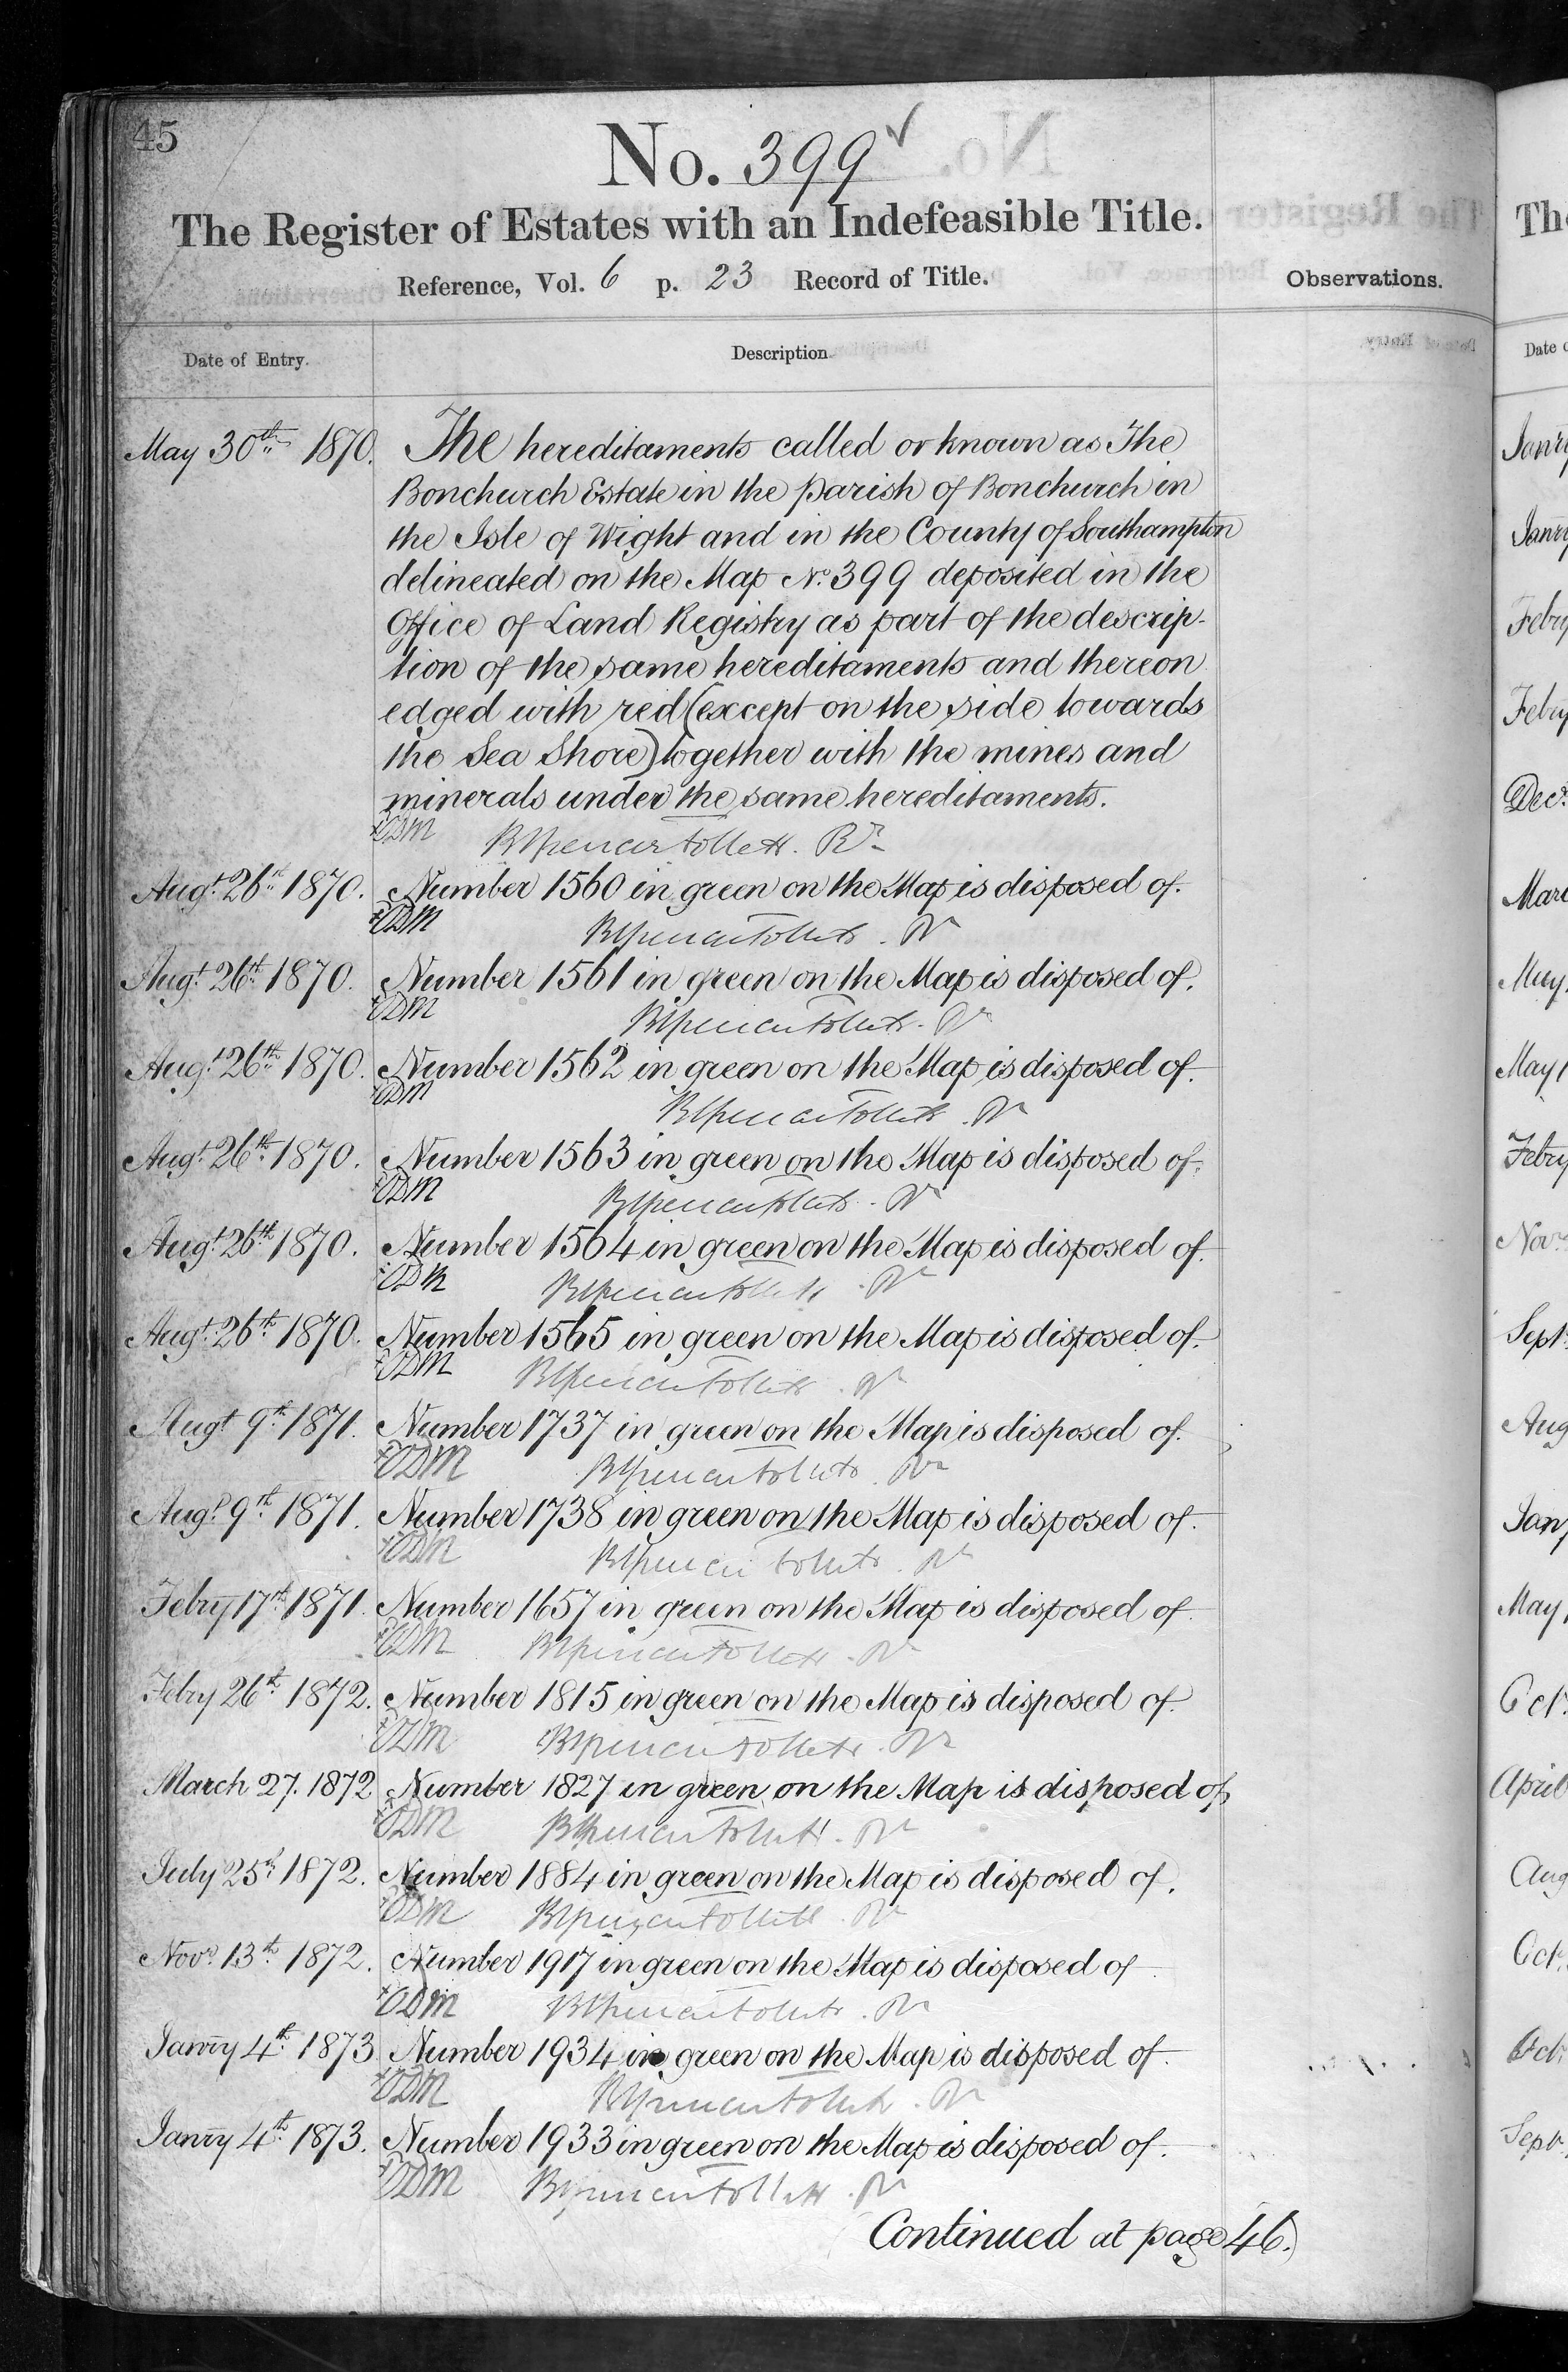 45
No. 399 ✓
The Register of Estates with an Indefeasible Title.
Reference, Vol. 6 p. 23 Record of Title.
Observations.
Date of Entry.
Description
May 30th 1870. The hereditaments called or known as The
Bonchurch Estate in the parish of Bonchurch in
the Isle of Wight and in the County of Southampton
delineated on the Map No. 399 deposited in the
Office of Land Registry as part of the descrip-
tion of the same hereditaments and thereon
edged with red (except on the side towards
the Sea Shore) together with the mines and
minerals under the same hereditaments.
Augt. 26th 1870. Number 1560 in green on the Map is disposed of.
Augt. 26th 1870. Number 1561 in green on the Map is disposed of.
Augt. 26th 1870. Number 1562 in green on the Map is disposed of.
Augt. 26th 1870. Number 1563 in green on the Map is disposed of.
Augt. 26th 1870. Number 1564 in green on the Map is disposed of.
Augt. 26th 1870. Number 1565 in green on the Map is disposed of.
Augt 9th 1871. Number 1737 in green on the Map is disposed of.
Augt. 9th 1871. Number 1738 in green on the Map is disposed of.
Febry 17th 1871. Number 1657 in green on the Map is disposed of.
Febry 26th 1872. Number 1815 in green on the Map is disposed of.
March 27. 1872 Number 1827 in green on the Map is disposed of,
July 25th 1872. Number 1884 in green on the Map is disposed of.
Novr. 13th 1872. Number 1917 in green on the Map is disposed of
Janry 4th 1873 Number 1934 in green on the Map is disposed of.
Janry 4th 1873. Number 1933 in green on the Map is disposed of.
Continued at page 46.